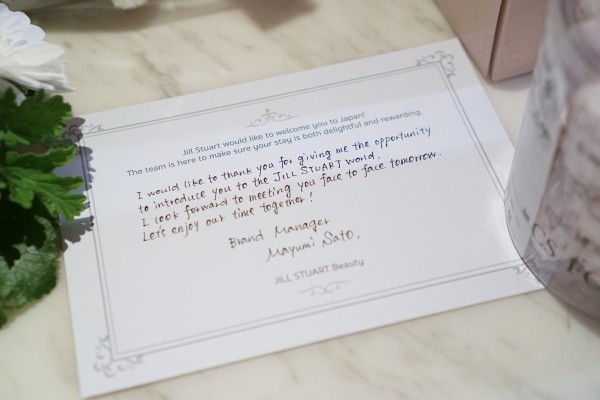 Jill Stuart would like to welcome you to Japan!
The team is here to make sure your stay is both delightful and rewarding.
I would like to thank you for giving me the opportunity
to introduce you to the JILL STUART world.
I look forward to meeting you face to face tomorrow.
Let's enjoy our time together!
Brand Manager
Mayumi Sato.
JILL STUART Beauty